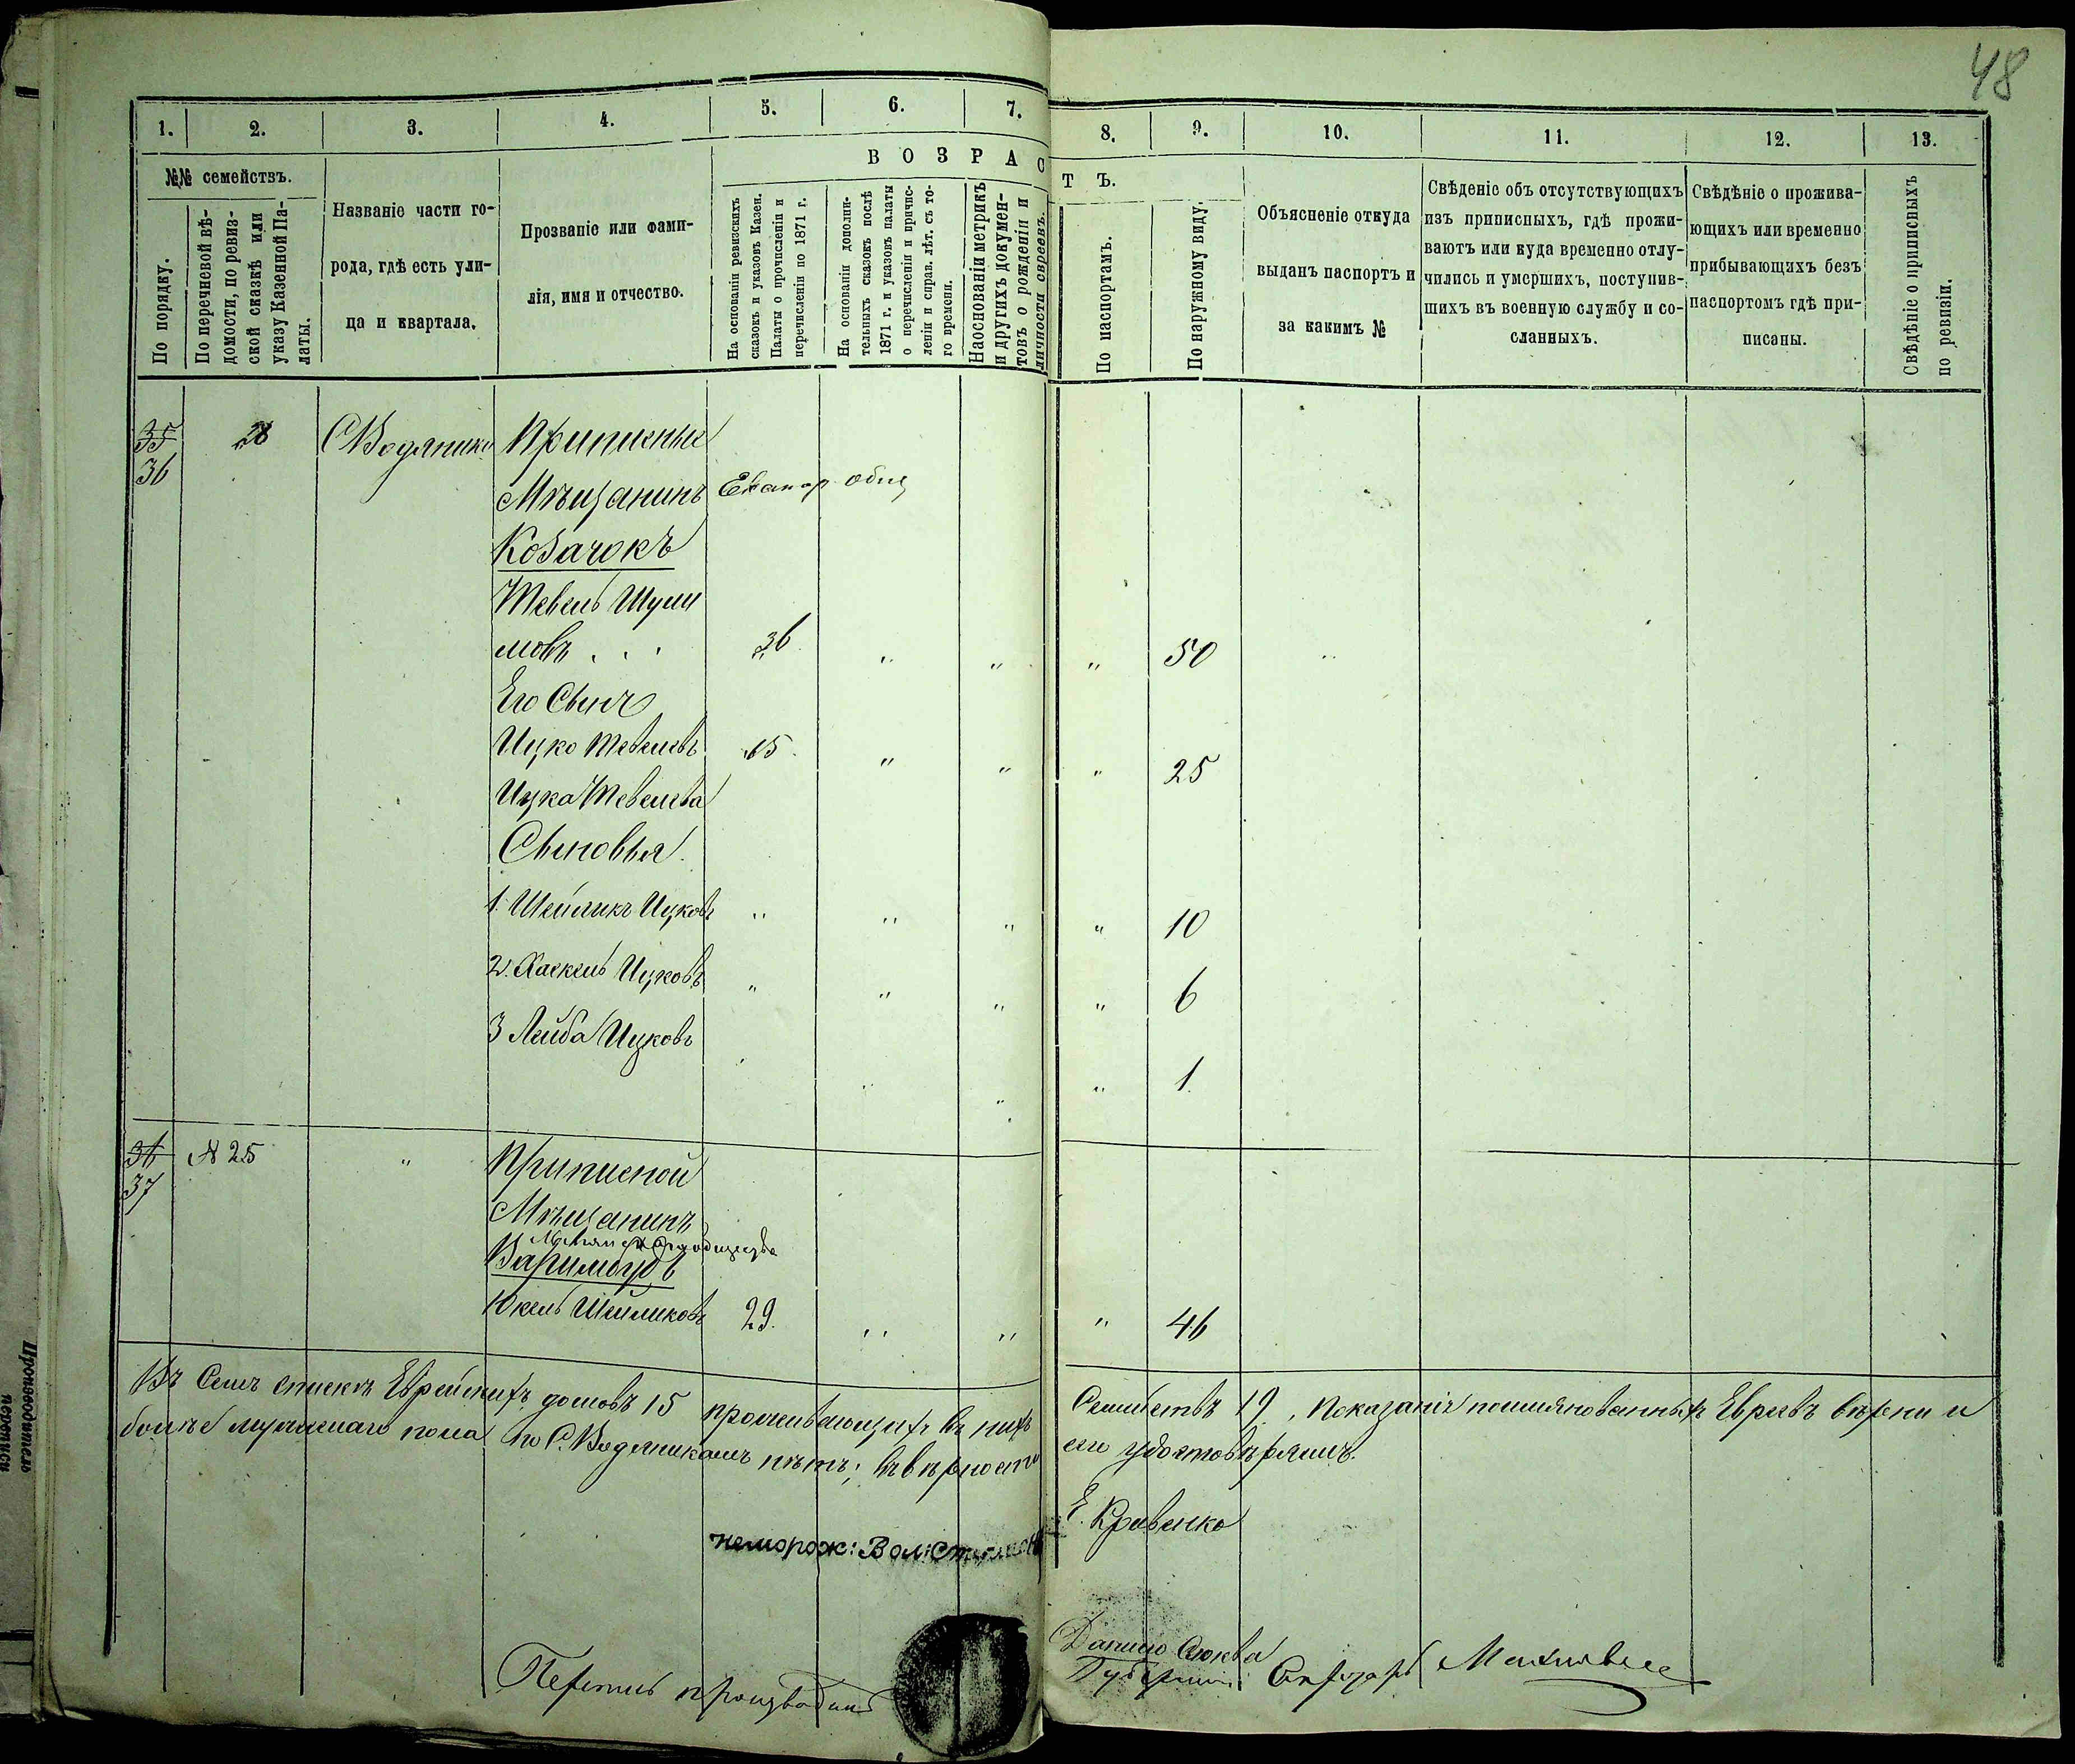 48
1. 2. 3. 4. 5. 6. 7. 8. 9. 10. 11. 12. 13.
№№ семействъ.
В О З Р А С Т Ъ.
По порядку.
По перечневой вѣ-
домости, по ревиз-
ской сказкѣ или
указу Казенной Па-
латы.
Названіе части го-
рода, гдѣ есть ули-
ца и квартала.
Прозваніе или фами-
лія, имя и отчество.
На основаніи ревизскихъ
сказокъ и указовъ Казен.
Палаты о прочисленіи и
перечисленіи по 1871 г.
На основаніи дополни-
тельныхъ сказокъ послѣ
1871 г. и указовъ палаты
о перечисленіи и причис-
леніи и справ. лѣт. съ то-
го времени.
На основаніи метрикъ
и другихъ докумен-
товъ о рожденіи и
личности евреевъ.
По паспортамъ.
По наружному виду.
Объясненіе откуда
выданъ паспортъ и
за какимъ №
Свѣденіе объ отсутствующихъ
изъ приписныхъ, гдѣ прожи-
ваютъ или куда временно отлу-
чились и умершихъ, поступив-
шихъ въ военную службу и со-
сланныхъ.
Свѣдѣніе о прожива-
ющихъ или временно
прибывающихъ безъ
паспортомъ гдѣ при-
писаны.
Свѣдѣніе о приписныхъ
по ревизіи.
35 28 С Водяники Приписные
36
Мѣщанинъ
Козачокъ
Тевель Шули
мовъ . . . 36 " " " 50 "
Его Сынъ
Ицко Тевелевъ 15 " " " 25
Ицка Тевелева
Сыновья
1. Шейликъ Ицковъ " " " " 10
2. Хаскель Ицковъ " " " " 6
3 Лейба Ицковъ
" " " 1.
36 N 25 " Приписной
37
Мѣщанинъ
Юкель Шейликовъ 29. " " " 46
Въ Семъ спискѣ Еврейскихъ домовъ 15 проживающихъ въ нихъ Семействъ 19, показанія поимянованныхъ Евреевъ вѣрни и
болѣе мужескаго пола по С. Водяникамъ нѣтъ; въ вѣрности сего удостовѣряемъ.
Е. Кравенко
неморож: Вол:
Данило
Перепись производилъ
Производитель
переписи